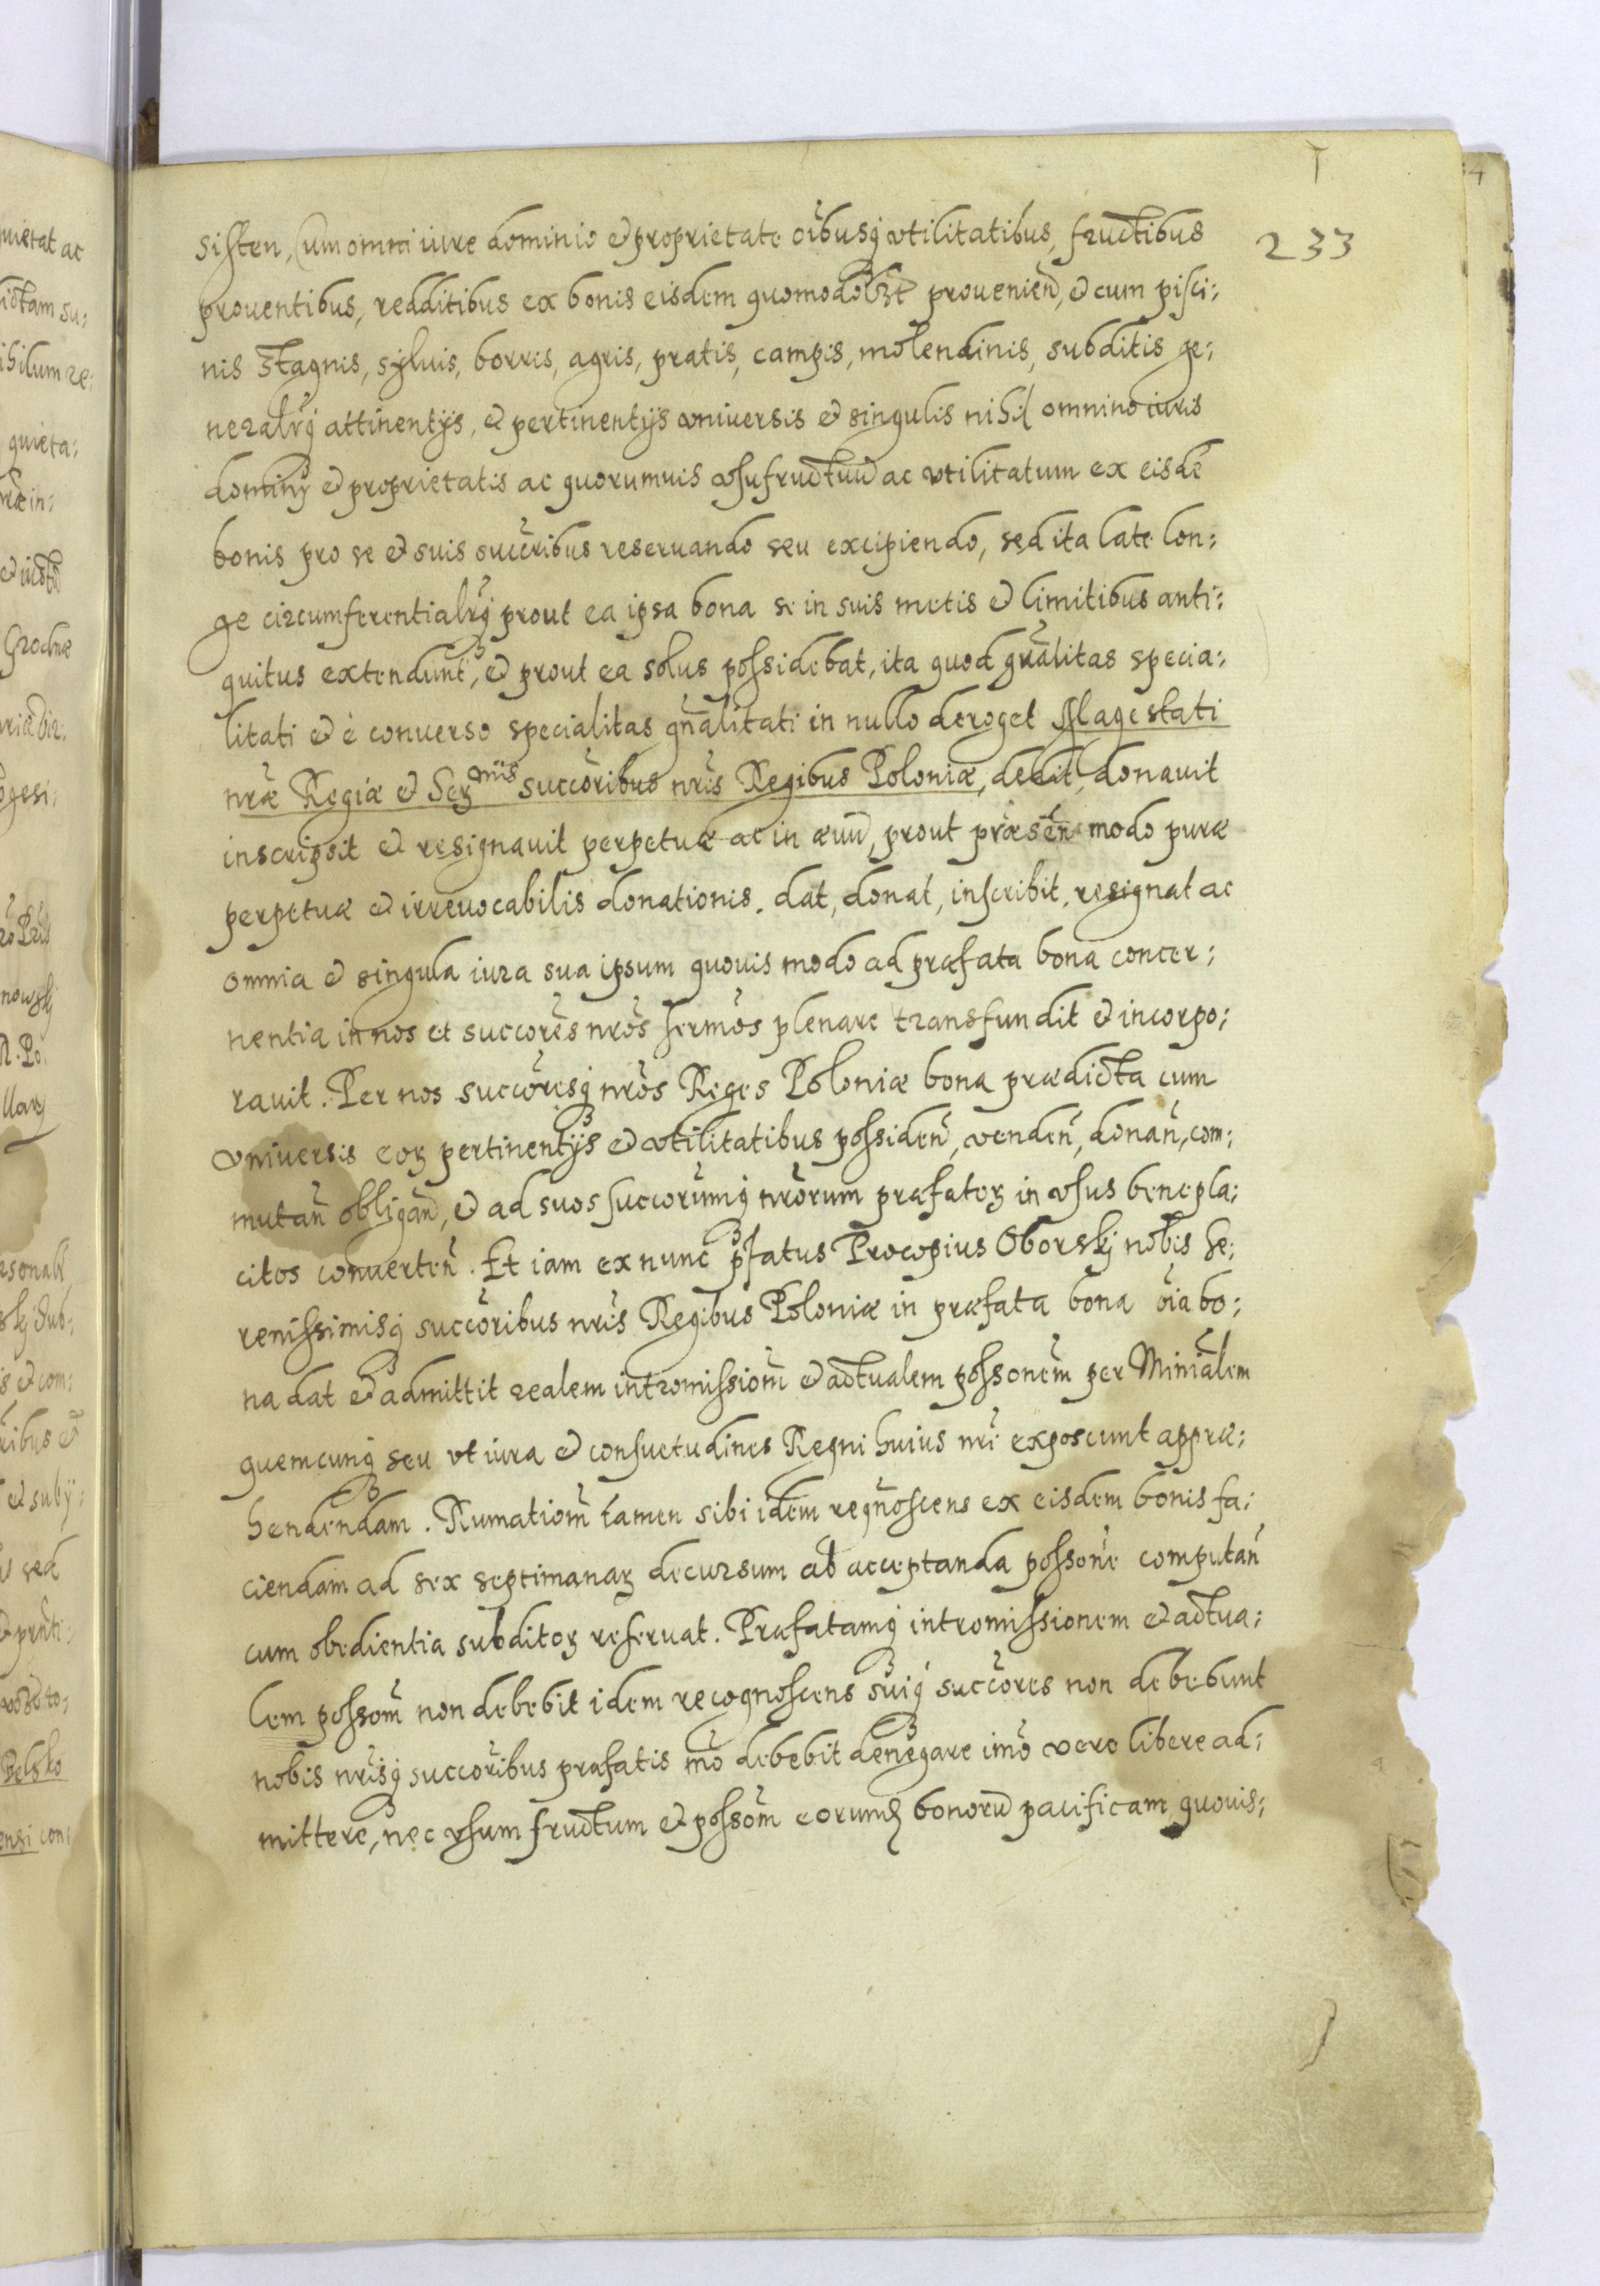 233
sisten, Cum omni iure dominio et proprietate oĩbusq̃ vtilitatibus, fructibus
prouentibus, redditibus ex bonis eisdem quomodolibet prouenien̄, et cum pisci:
nis stagnis, syluis, borris, agris, pratis, campis, molendinis, subditis ge:
neralr̃q̃ attinentijs, et pertinentijs vniuersis et singulis nihil omnino iuris
dominij et proprietatis ac quorumuis vsufructuū ac vtilitatum ex eisdē
bonis pro se et suis succr̃ibus reseruando seu excipiendo, sed ita late lon:
ge circumferentialr̃q̃ prout ea ipsa bona se in suis metis et limitibus anti:
quitus extendunt, et prout ea solus possidebat, ita quod gñralitas specia:
litati et è conuerso specialitas gñalitati in nullo deroget Magestati
nr̃æ Regiæ et Serᵐⁱˢ succõribus nr̃is Regibus Poloniæ, dedit, donauit
inscripsit et resignauit perpetuæ ac in æuū, prout præsen̄ modo puræ
perpetuæ et irreuocabilis donationis. dat, donat, inscribit, resignat ac
omnia et singula iura sua ipsum quouis modo ad præfata bona concer:
nentia in nos et succõres nr̃os sermõs plenare transfundit et incorpo:
rauit. Per nos succõresq̃ nr̃os Reges Poloniæ bona prædicta cum
vniuersis eoꝝ pertinentijs et vtilitatibus possiden̄, venden̄, donan̄, com:
mutan̄ obligan̄, et ad suos succorũmq̃ nr̃orum præfatoꝝ in vsus benepla:
citos conuerten̄. Et iam ex nunc p̃fatus Procopius Oborskj nobis Se:
renissimisq̃ succõribus nr̃is Regibus Poloniæ in præfata bona oĩa bo:
na dat et admittit realem intromissiom̃ et actualem possonẽm per Miniãlem
quemcunq̃ seu vt iura et consuetudines Regni huius nr̃i exposcunt appræ:
hendendam. Rumatiom̃ tamen sibi idem regñoscens ex eisdem bonis fa:
ciendam ad sex septimanaꝝ decursum ab acceptanda possoñe computan̄
cum obedientia subditoꝝ reseruat. Præfatamq̃ intromissionem et actua:
lem possom̃ non debebit idem recognoscens suiq̃ succõres non debebunt
nobis nr̃isq̃ succõribus præfatis mõ debebit denegare imõ vero libere ad:
mittere, nec vsum fructum et possom̃ eorumꝗ bonorū pacificam quouis: